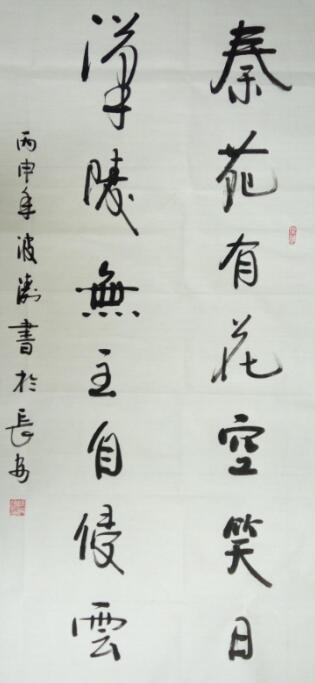 秦苑有花空笑日
漢陵無主自侵雲
丙申年波濤書於長安